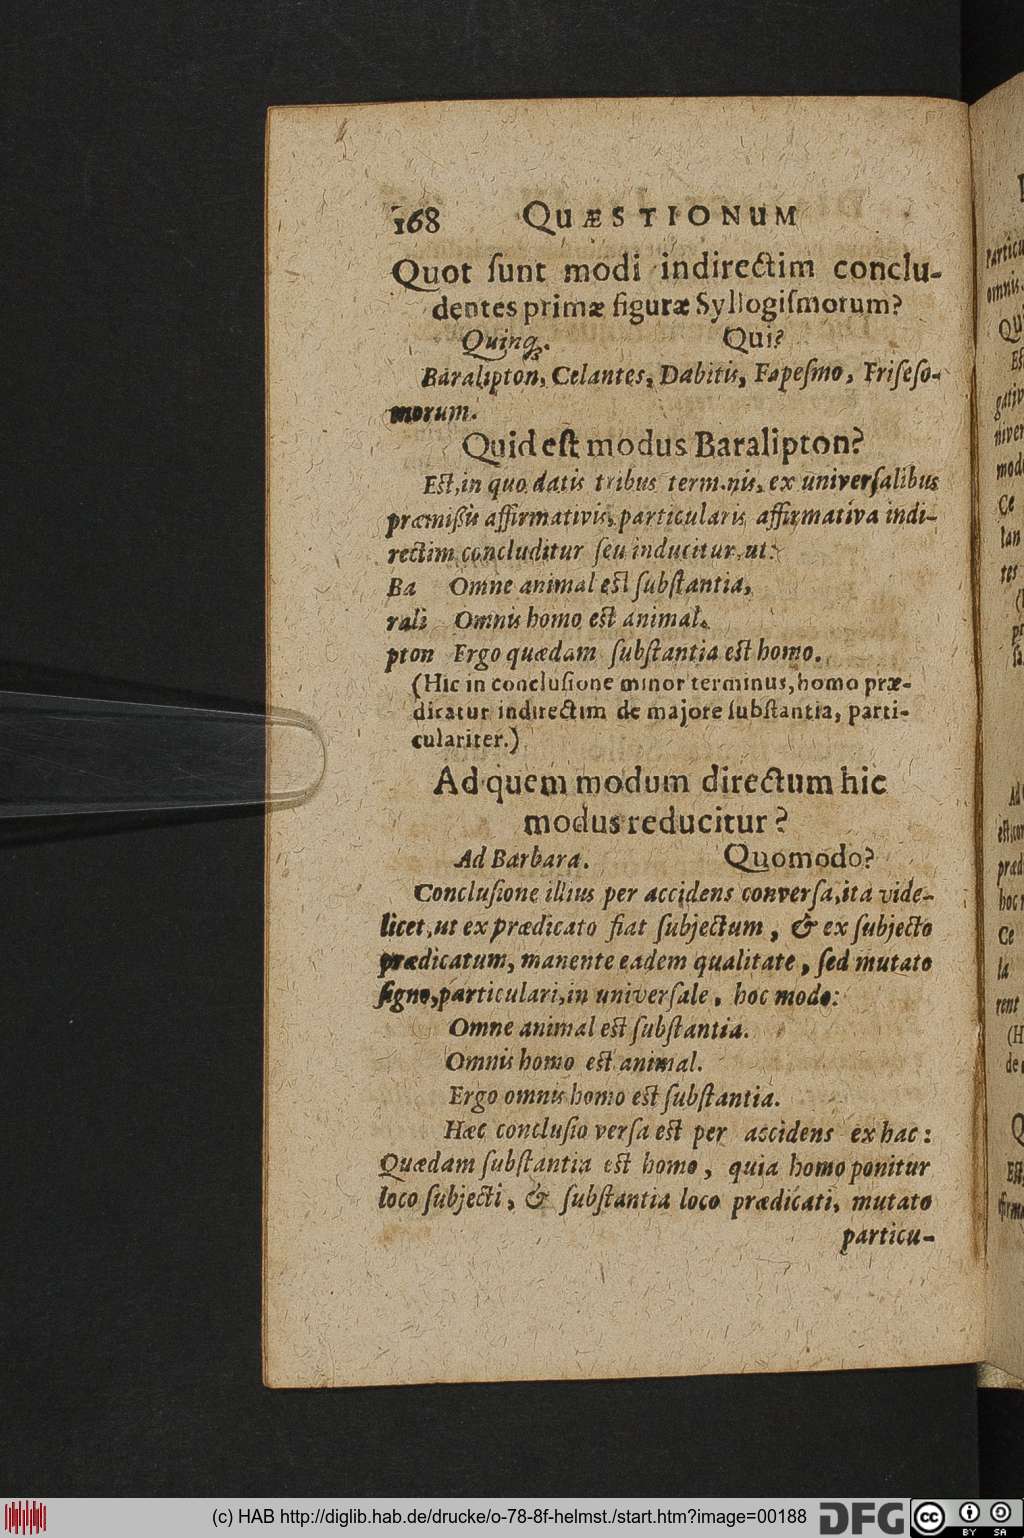 168 QUÆSTIONUM
Quot ſunt modi indirectim conclu-
dentes primæ figuræ Syllogiſmorum?
Quinq;. Qui?
Baralipton, Celantes, Dabitis, Fapeſmo, Friſeſo-
morum.
Quid eſt modus Baralipton?
Eſt, in quo datis tribus terminis, ex univerſalibus
præmiſſis affirmativis, particularis affirmativa indi-
rectim concluditur ſeu inducitur, ut:
Ba Omne animal eſt ſubſtantia,
rali Omnis homo eſt animal.
pton Ergo quædam ſubſtantia eſt homo.
(Hic in concluſione minor terminus, homo præ-
dicatur indirectim de majore ſubſtantia, parti-
culariter.)
Ad quem modum directum hic
modus reducitur?
Ad Barbara. Quomodo?
Concluſione illius per accidens converſa, ita vide-
licet, ut ex prædicato fiat ſubjectum, & ex ſubjecto
prædicatum, manente eadem qualitate, ſed mutato
ſigno, particulari, in univerſale, hoc modo:
Omne animal eſt ſubſtantia.
Omnis homo eſt animal.
Ergo omnis homo eſt ſubſtantia.
Hæc concluſio verſa eſt per accidens ex hac:
Quædam ſubſtantia eſt homo, quia homo ponitur
loco ſubjecti, & ſubſtantia loco prædicati, mutato
particu-
(c) HAB http://diglib.hab.de/drucke/o-78-8f-helmst./start.htm?image=00188
DFG
cc BY SA